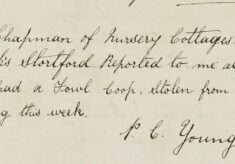 Chapman of Nursery Cottages
is Stortford. Reported to me a
had a Fowl Coop, stolen from
g this week.
P. C. Young